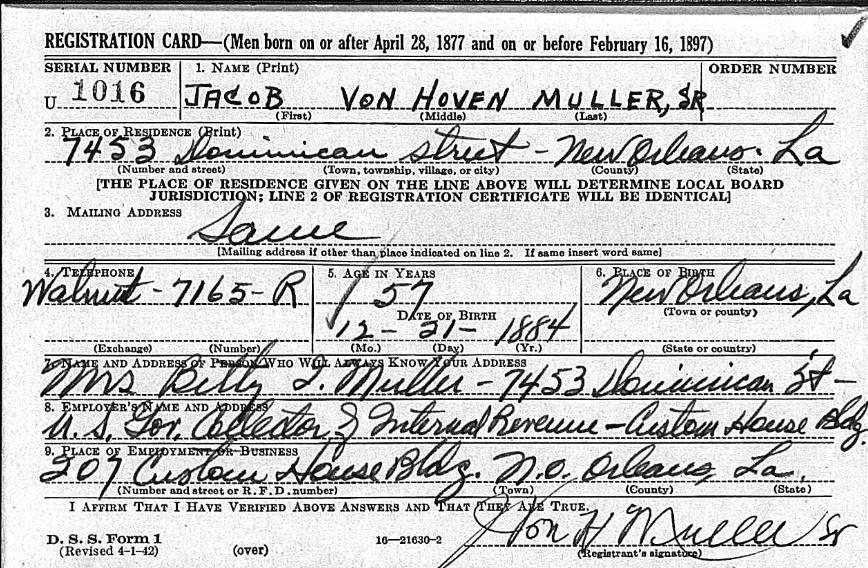 REGISTRATION CARD—(Men born on or after April 28, 1877 and on or before February 16, 1897)
SERIAL NUMBER 1. NAME (Print) ORDER NUMBER
U 1016 JACOB VON HOVEN MULLER, SR
(First) (Middle) (Last)
2. PLACE OF RESIDENCE (Print)
7453 Dominican street - New Orleans. La
(Number and street) (Town, township, village, or city) (County) (State)
[THE PLACE OF RESIDENCE GIVEN ON THE LINE ABOVE WILL DETERMINE LOCAL BOARD
JURISDICTION; LINE 2 OF REGISTRATION CERTIFICATE WILL BE IDENTICAL]
3. MAILING ADDRESS
Same
[Mailing address if other than place indicated on line 2. If same insert word same]
4. TELEPHONE 5. AGE IN YEARS 6. PLACE OF BIRTH
Walnut - 7165 - R 57 New Orleans, La
DATE OF BIRTH (Town or county)
12 - 21 - 1884
(Exchange) (Number) (Mo.) (Day) (Yr.) (State or country)
7. NAME AND ADDRESS OF PERSON WHO WILL ALWAYS KNOW YOUR ADDRESS
Mrs Betty Muller - 7453 Dominican St -
8. EMPLOYER'S NAME AND ADDRESS
U.S. Gov. Collector of Internal Revenue - Custom House Bldg.
9. PLACE OF EMPLOYMENT OR BUSINESS
207 Custom House Bldg. N.O. Orleans, La.
(Number and street or R. F. D. number) (Town) (County) (State)
I AFFIRM THAT I HAVE VERIFIED ABOVE ANSWERS AND THAT THEY ARE TRUE.
Von H Muller Sr
D. S. S. Form 1
(Revised 4-1-42) (over) 16—21630-2 (Registrant's signature)